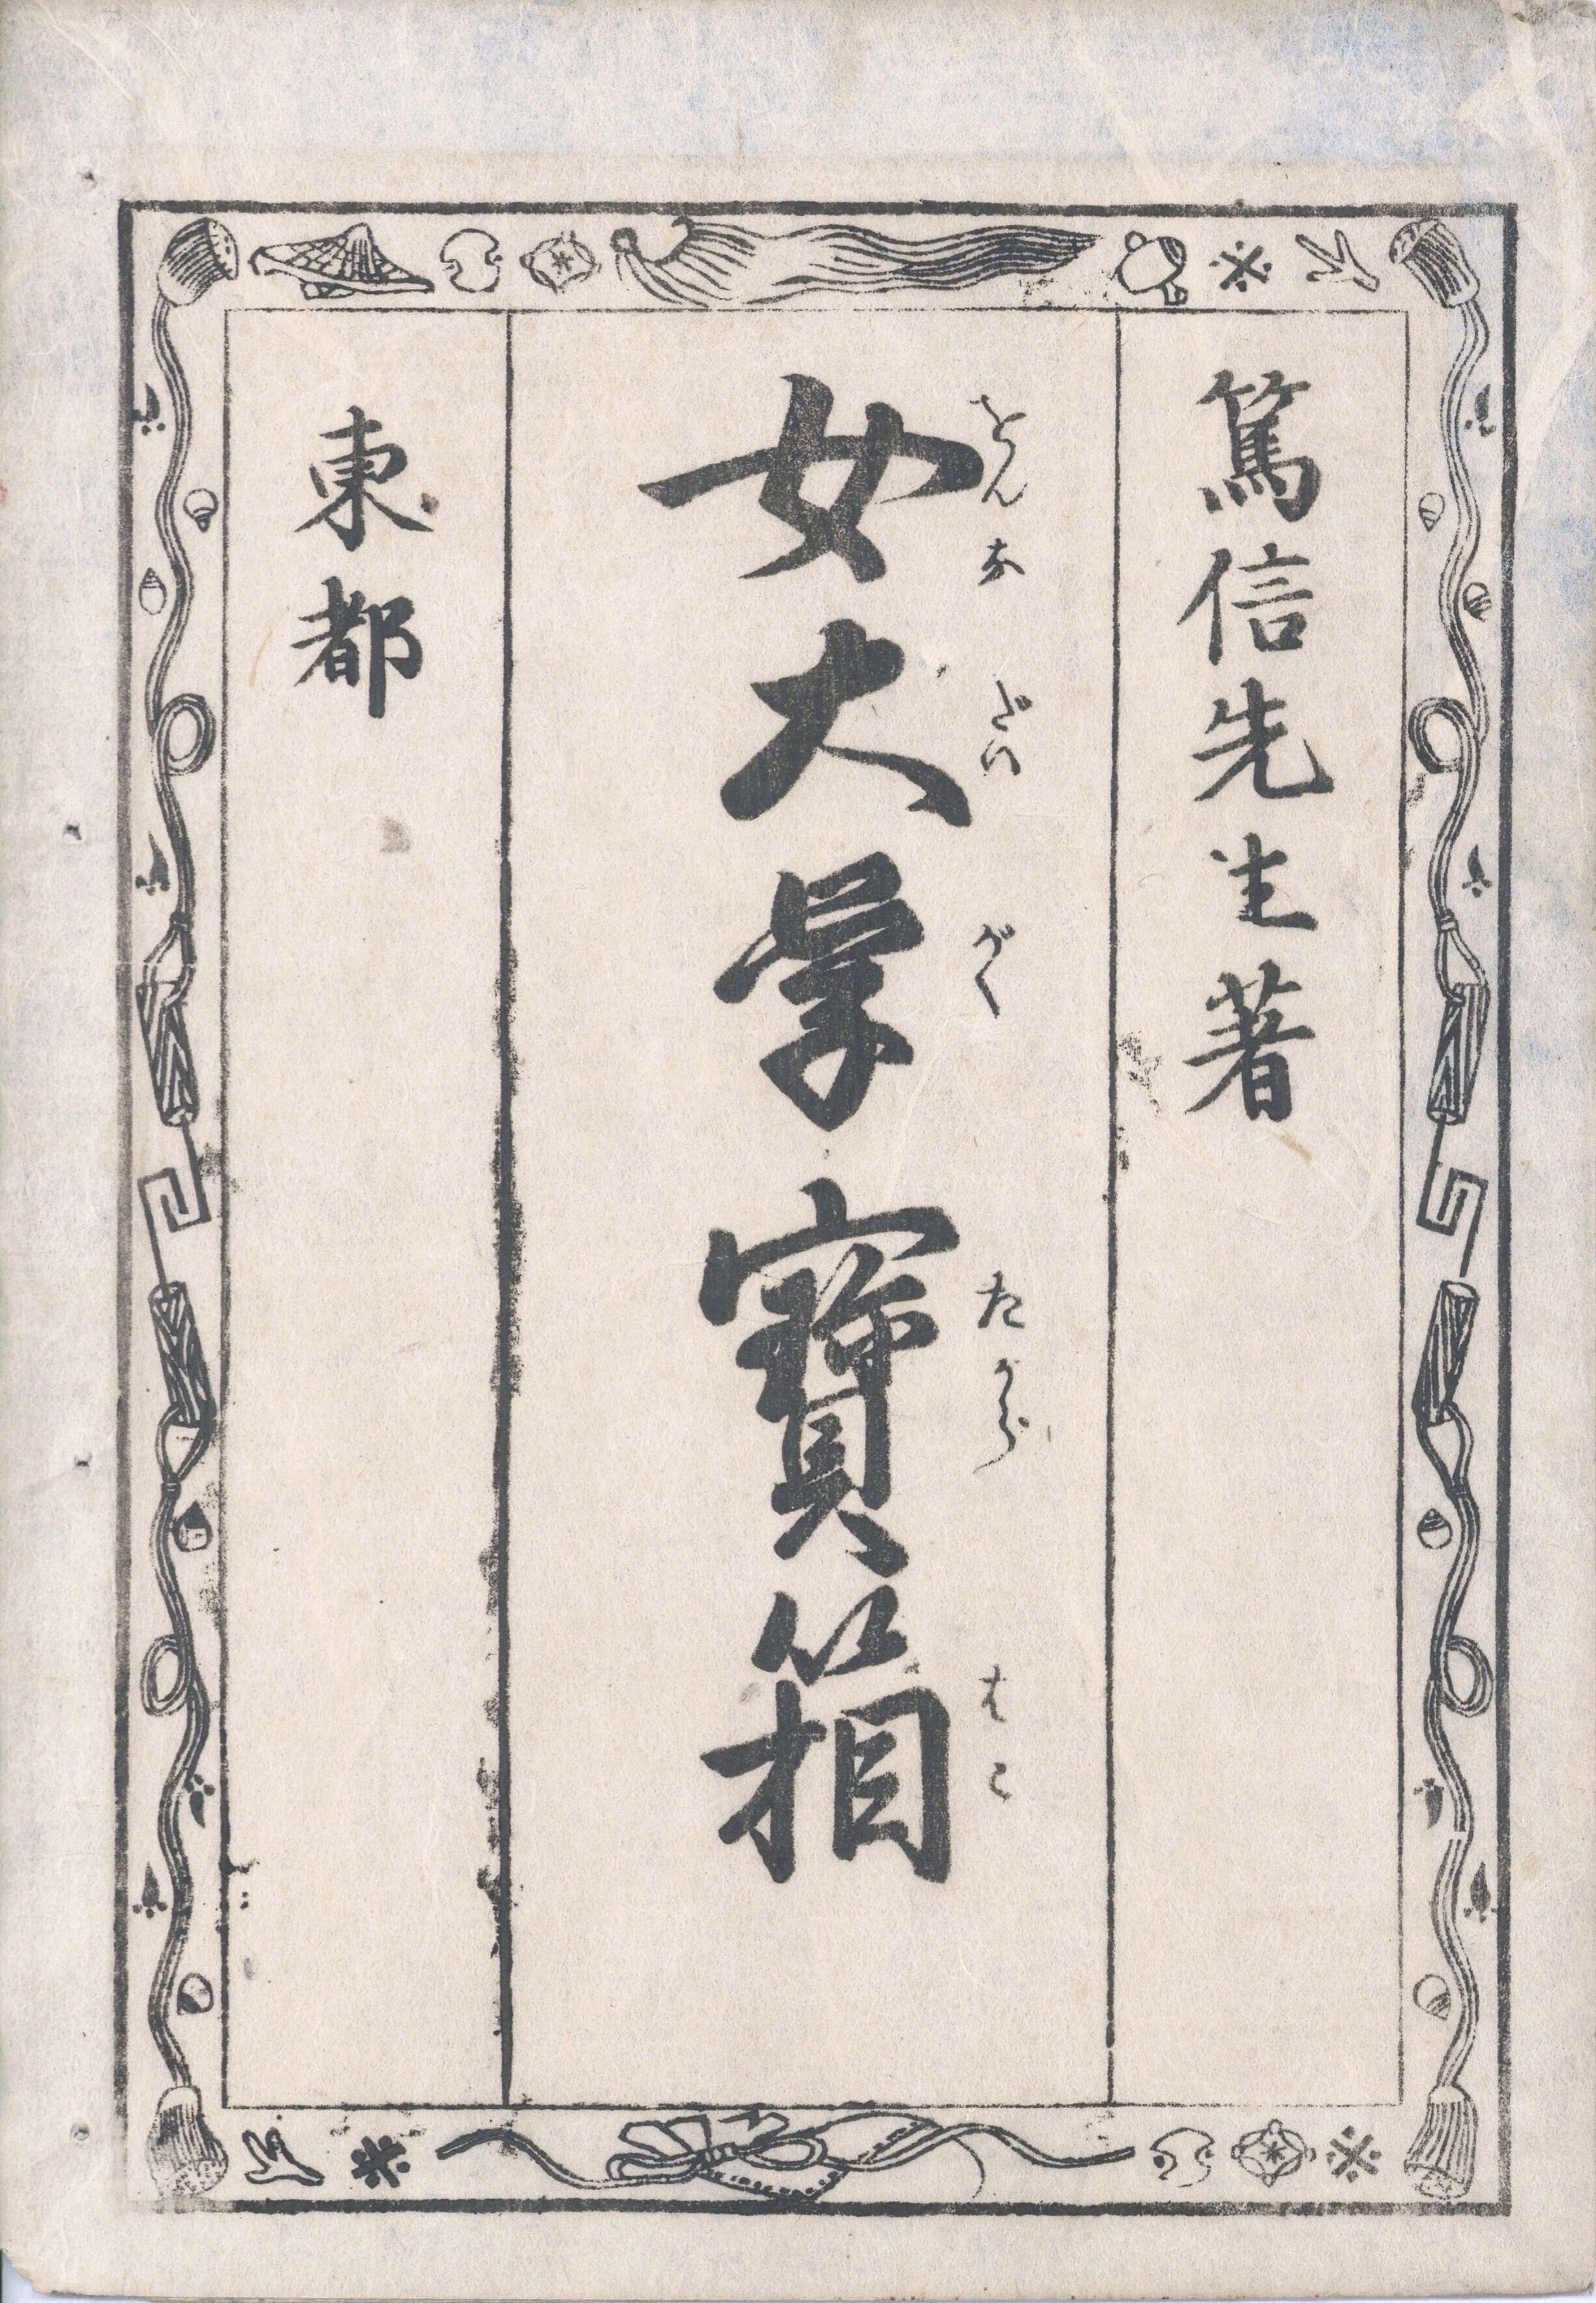 篤信先生著
女大學寶箱
をんな だいがく たからはこ
東都